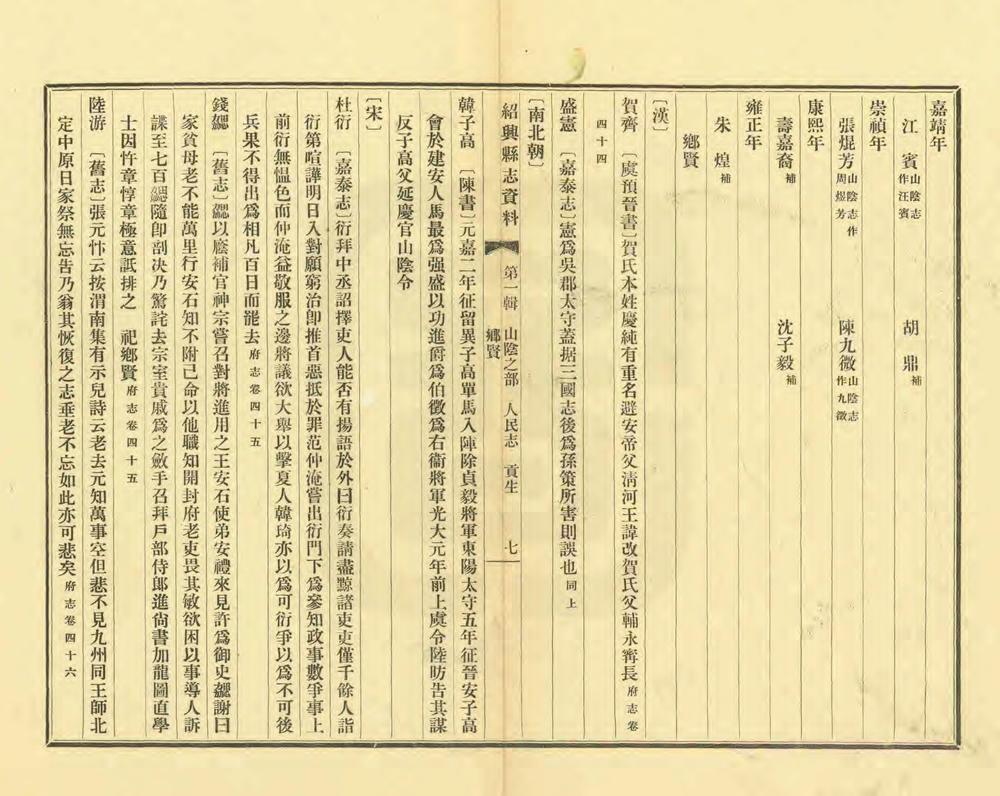 嘉靖年
江賓山陰志作汪賓　胡鼎補
崇禎年
張焜芳山陰志作周焜芳　陳九徵山陰志作九徵
康熙年
壽嘉裔補　沈子毅補
雍正年
朱煌補
鄉賢
〔漢〕
賀齊　〔虞預晉書〕賀氏本姓慶純有重名避安帝父淸河王諱改賀氏父輔永寗長府志卷
四十四
盛憲　〔嘉泰志〕憲爲吳郡太守蓋據三國志後爲孫策所害則誤也同上
〔南北朝〕
紹興縣志資料　第一輯　山陰之部　人民志　貢生　鄉賢　七
韓子高　〔陳書〕元嘉二年征留異子高單馬入陣除貞毅將軍東陽太守五年征晉安子高
會於建安人馬最爲强盛以功進爵爲伯徵爲右衞將軍光大元年前上虞令陸昉告其謀
反子高父延慶官山陰令
〔宋〕
杜衍　〔嘉泰志〕衍拜中丞詔擇吏人能否有揚語於外曰衍奏請盡黥諸吏吏僅千餘人詣
衍第喧譁明日入對願窮治卽推首惡抵於罪范仲淹嘗出衍門下爲參知政事數爭事上
前衍無慍色而仲淹益敬服之邊將議欲大舉以擊夏人韓琦亦以爲可衍爭以爲不可後
兵果不得出爲相凡百日而罷去府志卷四十五
錢勰　〔舊志〕勰以廕補官神宗嘗召對將進用之王安石使弟安禮來見許爲御史勰謝曰
家貧母老不能萬里行安石知不附己命以他職知開封府老吏畏其敏欲困以事導人訴
諜至七百勰隨卽剖決乃驚詫去宗室貴戚爲之斂手召拜戶部侍郎進尙書加龍圖直學
士因忤章惇章極意詆排之　祀鄉賢府志卷四十五
陸游　〔舊志〕張元忭云按渭南集有示兒詩云老去元知萬事空但悲不見九州同王師北
定中原日家祭無忘吿乃翁其恢復之志垂老不忘如此亦可悲矣府志卷四十六